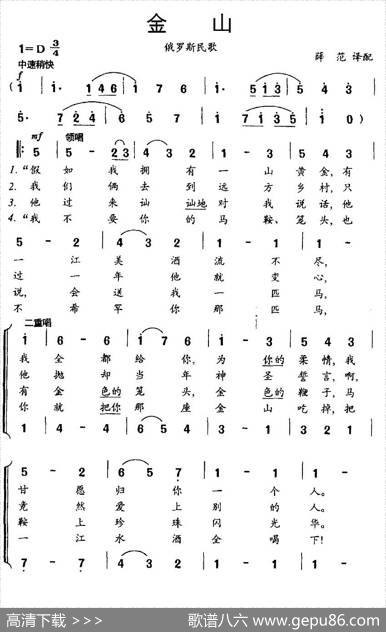 金 山
俄罗斯民歌
1=D 3/4
薛 范 译配
中速稍快
f
(i i·146 1 7 i i· 513 5 4 3
5· 724 6 i· 513 5 7·124 5 1 0)
mf 领唱
5 5 - 23 3 4·3 2 1 - 3
1.“假 如 我 拥 有 一 山 黄金,有
2.我 们 俩 去 到 远 方 乡村,只
3.他 过 来 讪 讪地 对 我 说话,他
4.“我 不 要 你 的 马 鞍、笼头,也
5 - 2 4 3 2 1 - 7 1 -
一 江 美 酒 流 不 尽,
过 一 年 他 就 变 心,
说,会 送 我 一 匹 马,
不 希 罕 你 那 一 匹 马,
二重唱
i 6 - 6 i 7 6 5 - i 3 - 4
我 全 都 给 你,为 你的 柔 情,我
他 抛 却 当 年 神 圣 誓 言,啊,
有 金 色的 笼 头,金 色的 鞭 子,马
你 就 把你 那 座 金 山 吃 掉,把
1 4 - 4 6 5 4 3 - 3 1 - 1
5 - 2 6 5 7 1 - 2 1 -
甘 愿 归 你 一 个 人。
竟 然 爱 上 别 的 人。
鞍 上 珍 珠 闪 光 华。
一 江 水 酒 全 喝 下!
7 - 7 4 3 2 1 - 7 1 -
高清下载 >>>
歌谱八六 www.gepu86.com